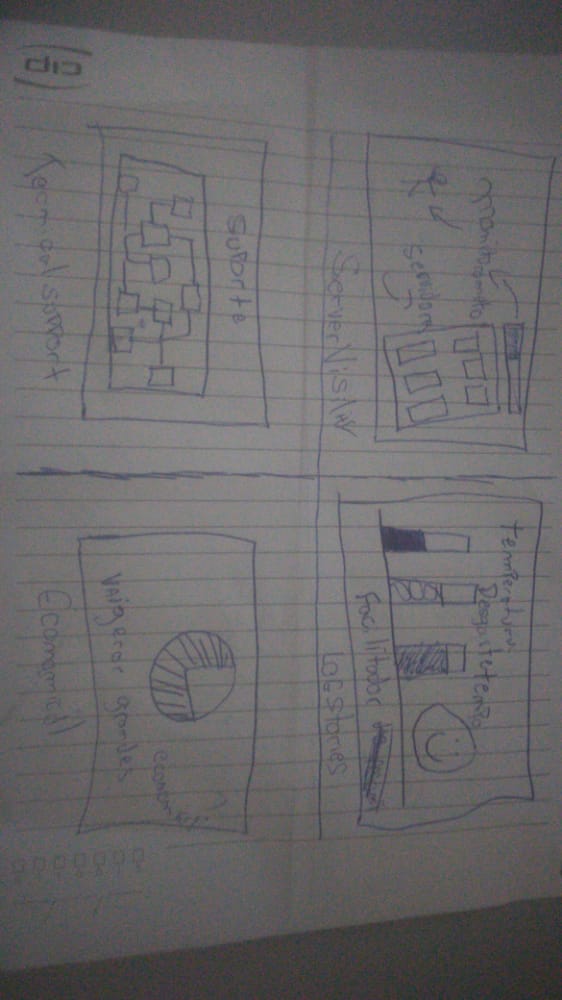 Servidor
ServerVision
temperatura
Desgaste tempo
facilitador
LOGStories
suporte
Tecmical support
econom
VAi gerar grandes
Economical
cip